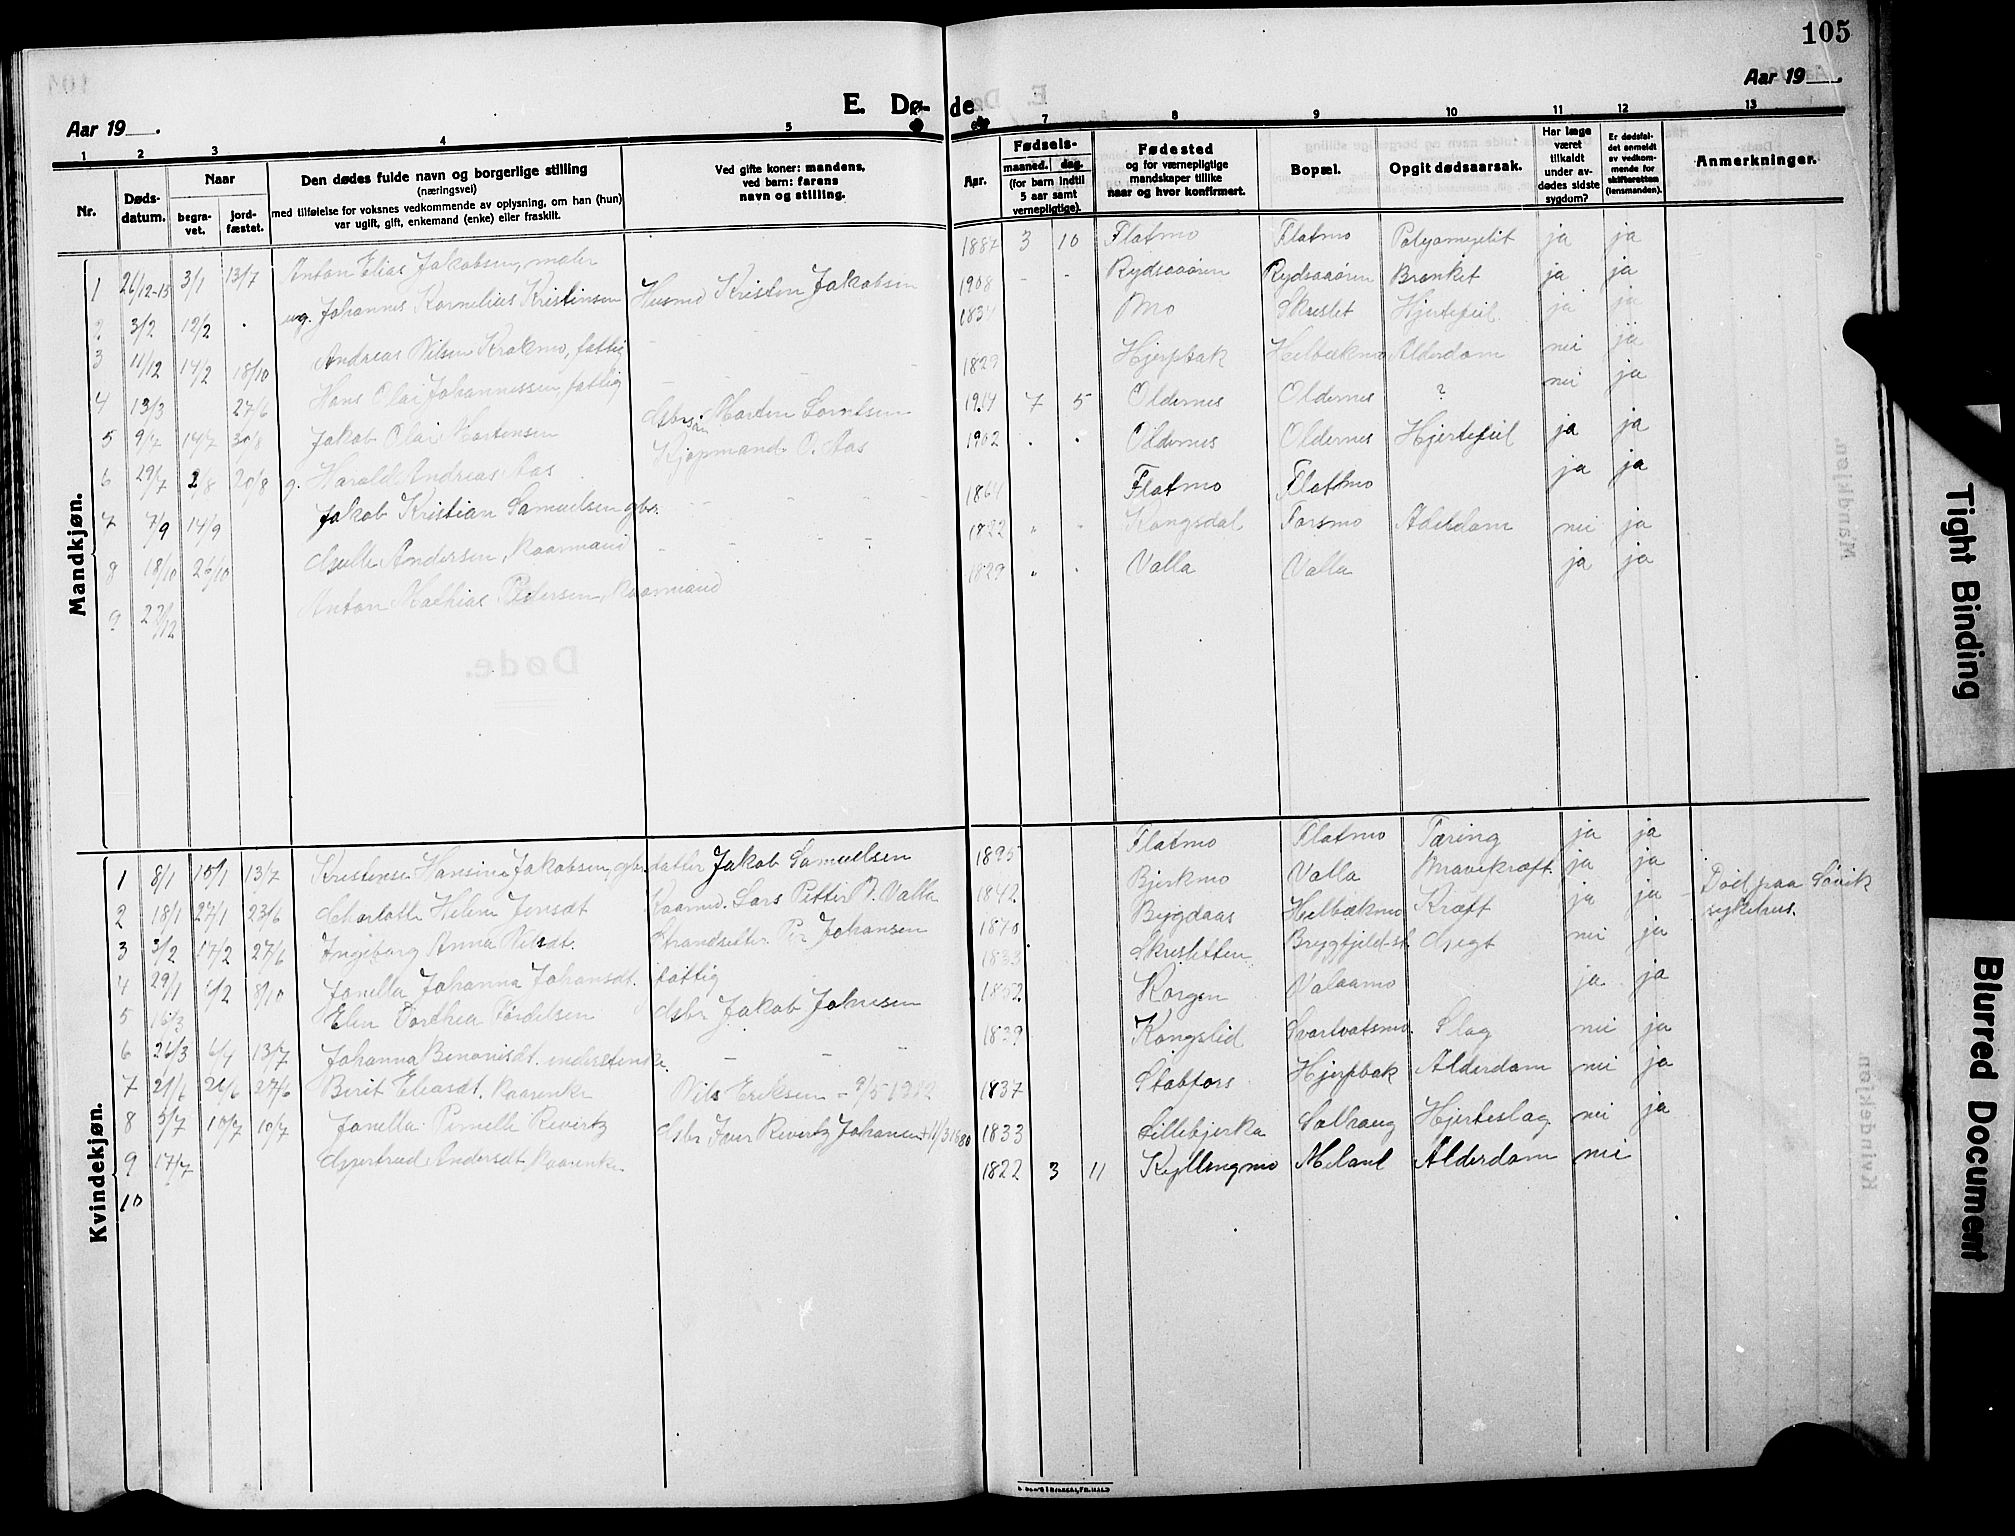 105
Aar 19___.
E. Døde
Aar 19___.
1 2 3 4 5 7 8 9 10 11 12 13
Nr. Døds-datum. Naar begra-vet. jord-fæstet. Den dødes fulde navn og borgerlige stilling (næringsvei) med tilføielse for voksnes vedkommende av oplysning, om han (hun) var ugift, gift, enkemand (enke) eller fraskilt. Ved gifte koner: mandens, ved barn: farens navn og stilling. Aar. Fødsels- maaned. dag. (for barn indtil 5 aar samt vernepligtige). Fødested og for værnepligtige mandskaper tillike naar og hvor konfirmert. Bopæl. Opgit dødsaarsak. Har læge været tilkaldt under av-dødes sidste sygdom? Er dødsfal-det anmeldt av vedkom-mende for skifteretten (lensmanden). Anmerkninger.
Mandkjøn.
1 26/12-15 3/1 13/7 Anton Elias Jakobsen, maler 1887 3 10 Flatmo Flatmo ja ja
2 3/2 12/2 . ug. Johannes Kornelius Kristinsen Husmd Kristen Jakobsen 1908 - - Rydsaaøren Rydsaaøren ja ja
3 11/12 14/2 18/10 Andreas Nilsen Krokmo, fattig 1834 Mo Skreslet Hjertefeil ja ja
4 13/3 27/6 Hans Olai Johannessen fattig 1829 Hjerpbak Helbækmo Alderdom nei ja
5 9/7 14/7 30/8 Jakob Olai Mortensen Morten Lorntsen 1914 7 5 Oldernes Oldernes ? nei ja
6 29/7 2/8 20/8 g. Harald Andreas Aas Kjøpmand O. Aas 1902 Oldernes Oldernes Hjertefeil ja ja
7 7/9 14/9 Jakob Kristian Samuelsen gbr. 1864 Flatmo Flatmo ja ja
8 18/10 26/10 Andersen, Kaarmand 1822 Kongsdal Forsmo Alderdom nei ja
9 27/12 Anton Mathias Pedersen, Kaarmand 1829 Valla Valla ja ja
Kvindekjøn.
1 8/1 15/1 13/7 Kristense Hansine Jakobsen, gbr. datter Jakob Samuelsen 1895 Flatmo Flatmo Tæring ja ja
2 18/1 27/1 23/6 Charlotte Helene Jensdt Kaarmd. Lars Petter N. Valla 1842 Bjerkmo Valla Mavekræft ja ja
3 3/2 17/2 27/6 Ingeborg Anna Nilsdt. Strandsitter Per Johansen 1870 Bygdaas Helbækmo Kræft ja ja Død paa Søvik sykehus.
4 29/1 6/2 8/10 Janella Johanna Johansdt. fattig 1833 Skresletten Brygfjeld nei ja
5 16/3 Elen Dorthea Tørdelsen Jakob Johnsen 1852 Korgen Valaamo ja ja
6 26/3 6/4 13/7 Johanna Benonisdt. inderstenke. 1839 Kongslid Svartvatsmo Slag nei ja
7 21/6 26/6 27/6 Berit Eliasdt. Kaarenke Nils Eriksen 1837 Stabfors Hjerpbak Alderdom nei ja
8 5/7 10/7 10/7 Janella Pernelle Revirtz Iver Revirtz Johansen 11/3 1880 1833 Lillebjerka Solhaug Hjerteslag nei ja
9 17/7 Gjertrud Andersdt, Kaarenke 1822 3 11 Kyllingmo Meland Alderdom nei
10
Tight Binding
Blurred Document